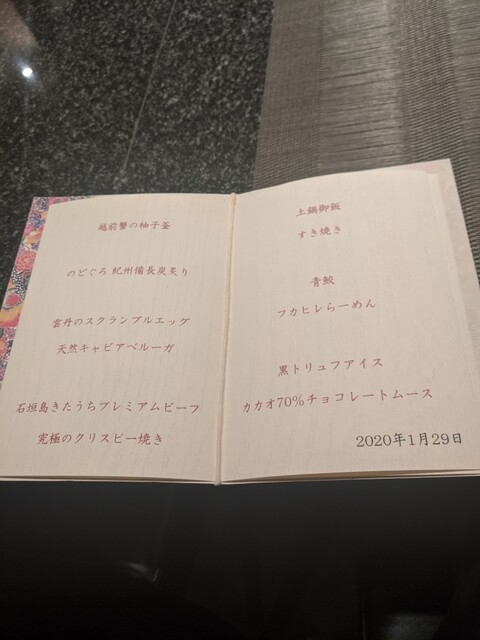 越前蟹の柚子釜
のどぐろ 紀州備長炭炙り
雲丹のスクランブルエッグ
天然キャビアベルーガ
石垣島きたうちプレミアムビーフ
究極のクリスピー焼き
土鍋御飯
すき焼き
青鮫
フカヒレらーめん
黒トリュフアイス
カカオ70%チョコレートムース
2020年1月29日